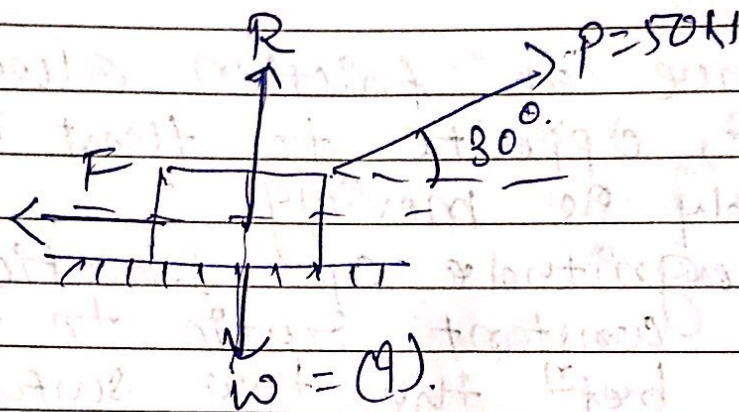 R
P=50N
30°.
F
W = (9).